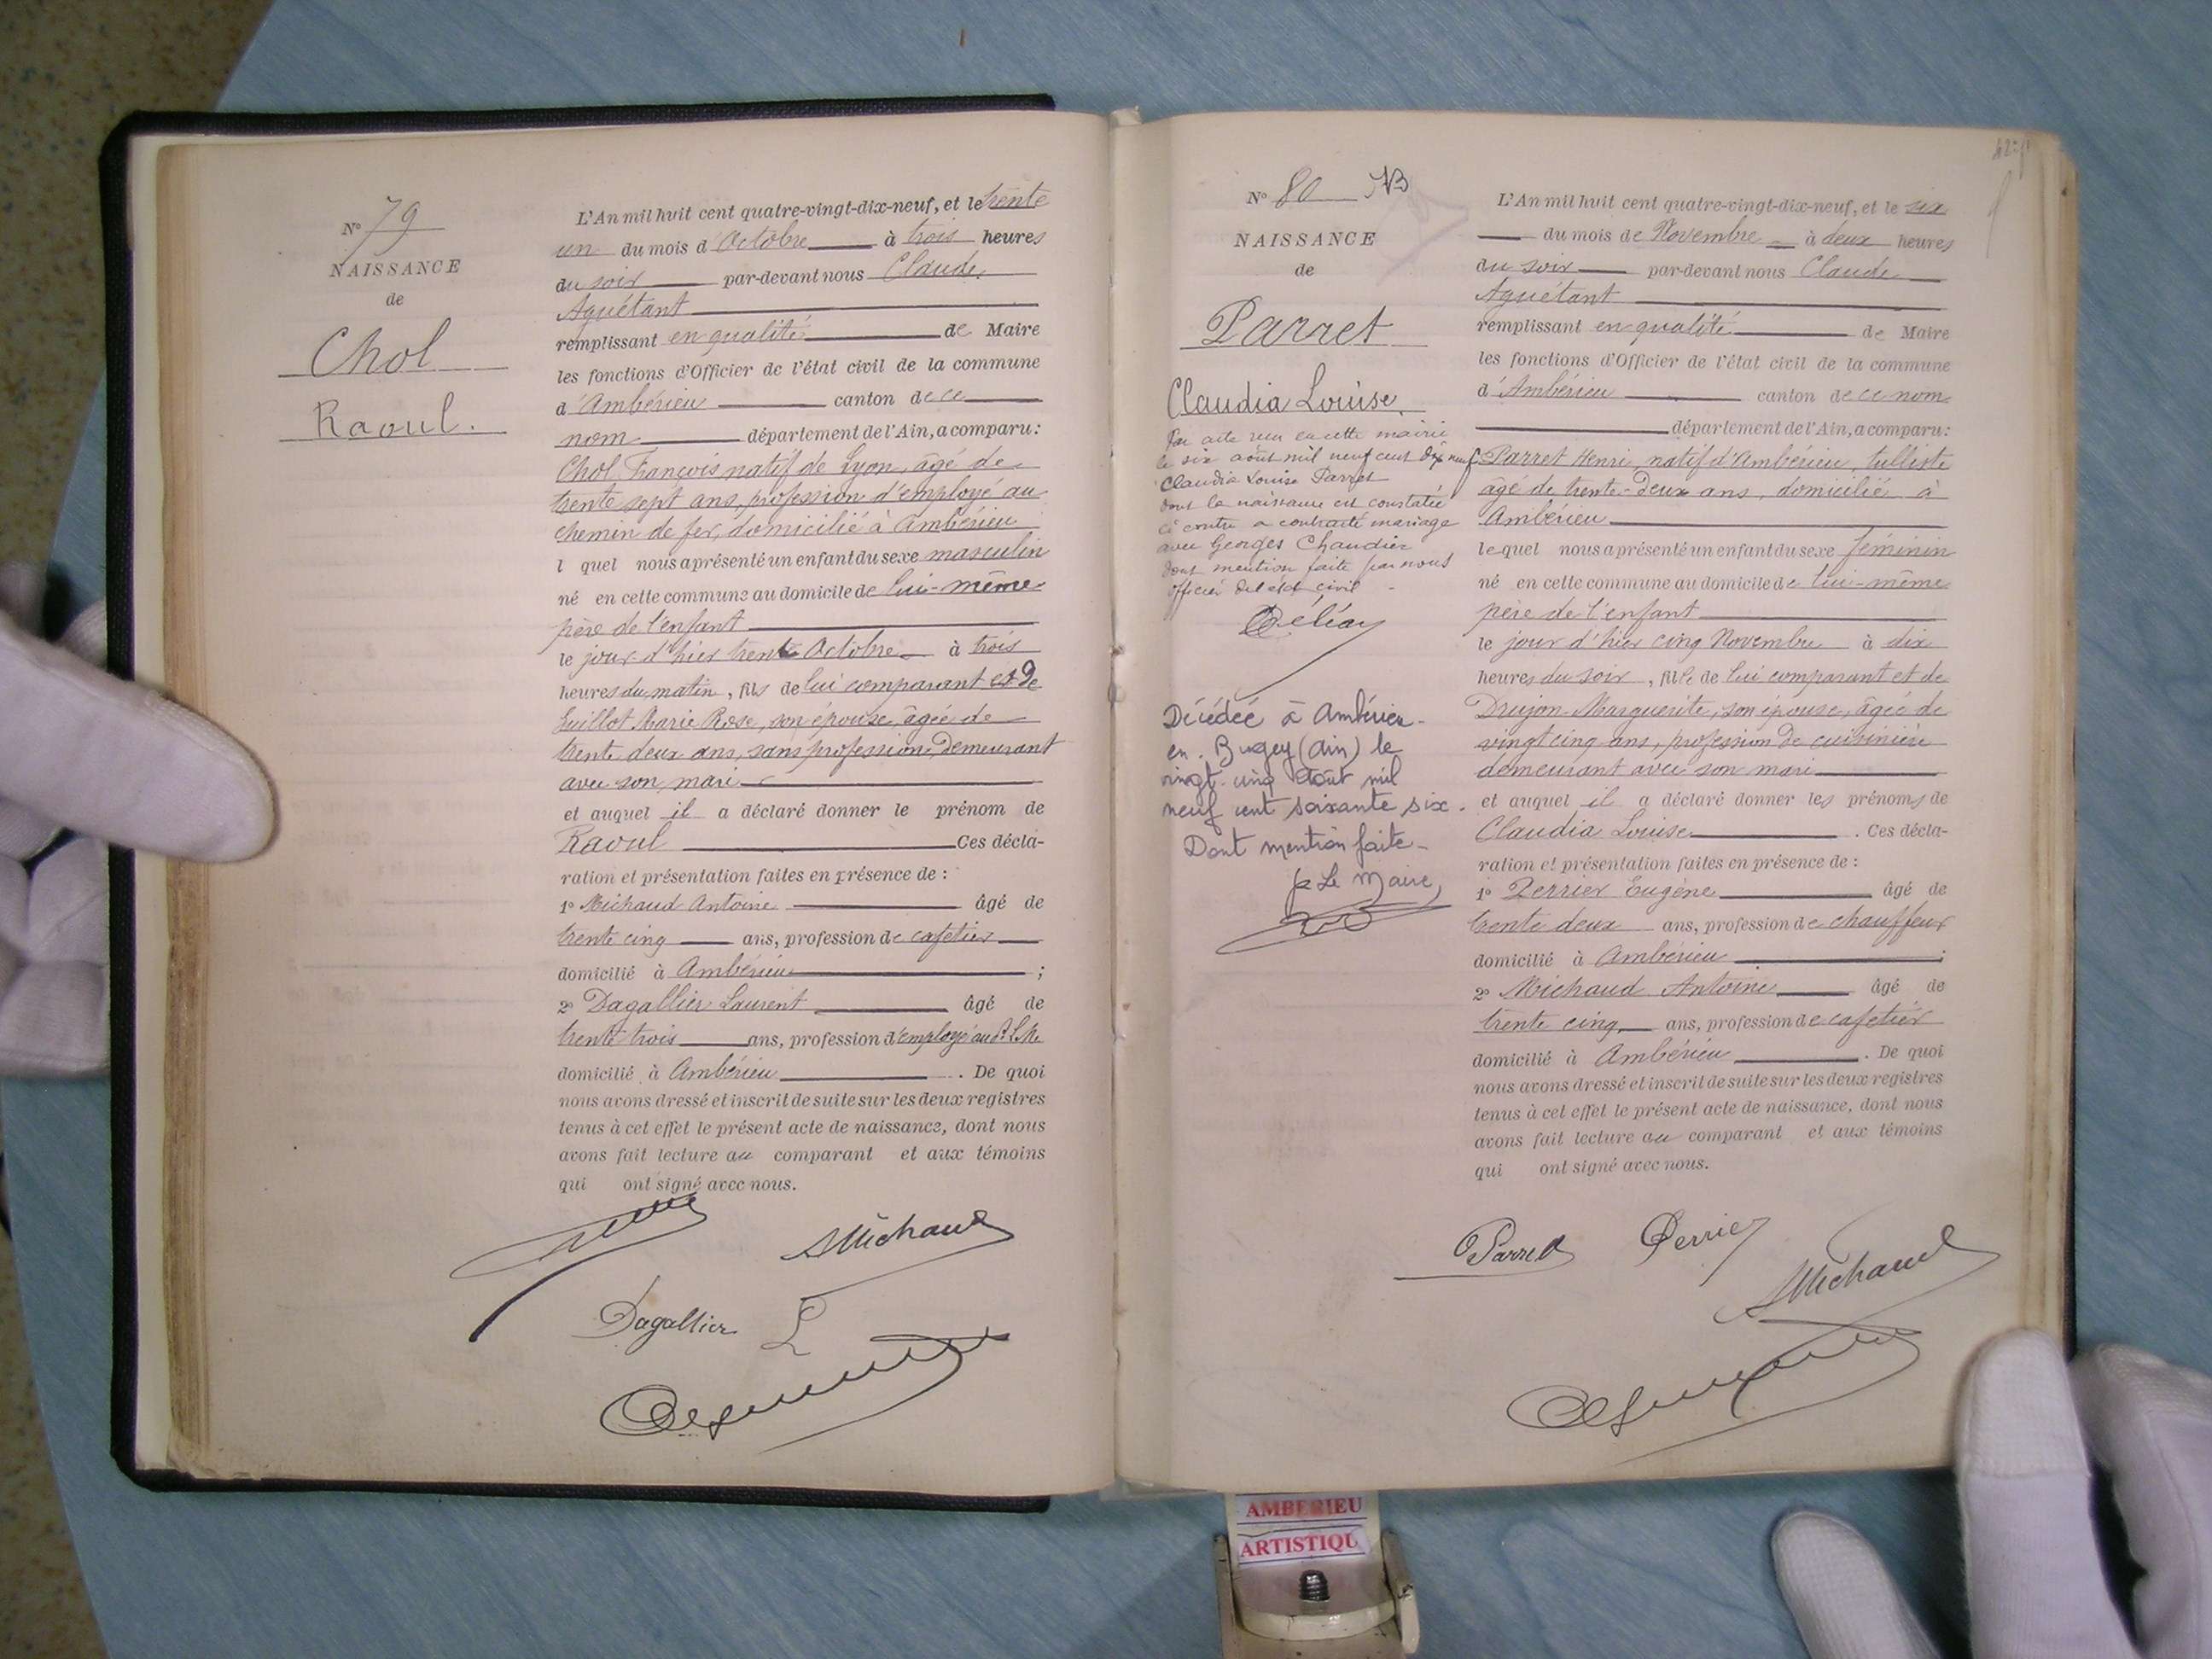 N° 79
NAISSANCE
de
Chol
Raoul.
L'An mil huit cent quatre-vingt-dix-neuf, et le trente
un du mois d'Octobre à trois heures
du soir par-devant nous Claude
Aguétant
remplissant en qualité de Maire
les fonctions d'Officier de l'état civil de la commune
d'Ambérieu canton de ce
nom département de l'Ain, a comparu:
Chol François natif de Lyon, âgé de
trente sept ans, profession d'employé au
chemin de fer, domicilié à Ambérieu
l quel nous a présenté un enfant du sexe masculin
né en cette commune au domicile de lui-même
père de l'enfant
le jour d'hier trente Octobre à trois
heures du matin, fils de lui comparant et de
Guillot Marie Rose, son épouse, âgée de
trente deux ans, sans profession, demeurant
avec son mari
et auquel il a déclaré donner le prénom de
Raoul Ces décla-
ration et présentation faites en présence de :
1° Michaud Antoine âgé de
trente cinq ans, profession de cafetier
domicilié à Ambérieu ;
2° Dagallier Laurent âgé de
trente trois ans, profession d'employé au P.L.M.
domicilié à Ambérieu . De quoi
nous avons dressé et inscrit de suite sur les deux registres
tenus à cet effet le présent acte de naissance, dont nous
avons fait lecture au comparant et aux témoins
qui ont signé avec nous.
AMichaud
Dagallier L
N° 80
NAISSANCE
de
Parret
Claudia Louise
Par acte reçu en cette mairie
le six août mil neuf cent dix neuf
Claudia Louise Parret
dont la naissance est constatée
ci contre a contracté mariage
avec Georges Chaudier
dont mention faite par nous
officier de l'état civil
Décédée à Ambérieu-
en-Bugey (Ain) le
vingt-cinq Août mil
neuf cent soixante six.
Dont mention faite-
p. Le Maire,
L'An mil huit cent quatre-vingt-dix-neuf, et le six
du mois de Novembre à deux heures
du soir par-devant nous Claude
Aguétant
remplissant en qualité de Maire
les fonctions d'Officier de l'état civil de la commune
d'Ambérieu canton de ce nom
département de l'Ain, a comparu:
Parret Henri, natif d'Ambérieu, tulliste
âgé de trente-deux ans, domicilié à
Ambérieu
lequel nous a présenté un enfant du sexe féminin
né en cette commune au domicile de lui-même
père de l'enfant
le jour d'hier cinq Novembre à dix
heures du soir, fille de lui comparant et de
Drujon Marguerite, son épouse, âgée de
vingt cinq ans, profession de cuisinière
demeurant avec son mari
et auquel il a déclaré donner les prénoms de
Claudia Louise . Ces décla-
ration et présentation faites en présence de :
1° Perrier Eugène âgé de
trente deux ans, profession de chauffeur
domicilié à Ambérieu ;
2° Michaud Antoine âgé de
trente cinq ans, profession de cafetier
domicilié à Ambérieu . De quoi
nous avons dressé et inscrit de suite sur les deux registres
tenus à cet effet le présent acte de naissance, dont nous
avons fait lecture au comparant et aux témoins
qui ont signé avec nous.
Parret Perrier
AMichaud
AMBERIEU
ARTISTIQU